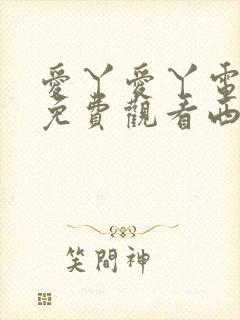 愛丫愛丫電
免費觀看西
笑閒神